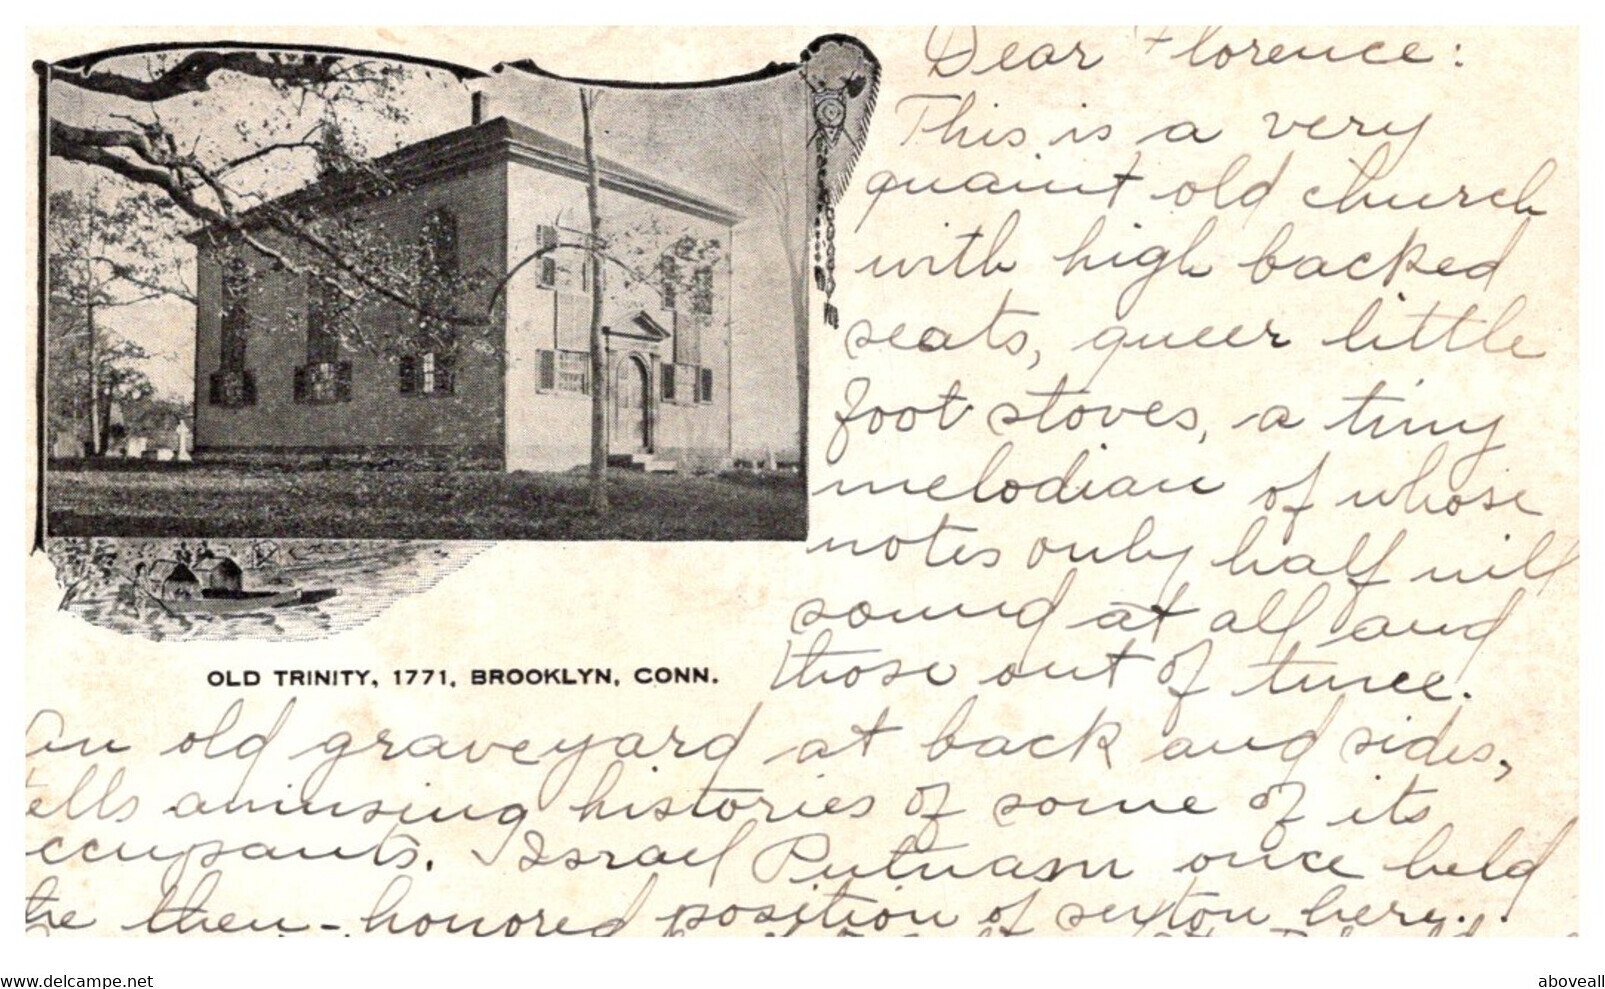 Dear Florence:
This is a very
quaint old church
with high backed
seats, queer little
foot stoves, a tiny
melodian of whose
notes only half will
sound at all and
those out of tune.
OLD TRINITY, 1771, BROOKLYN, CONN.
An old graveyard at back and sides,
tells amusing histories of some of its
occupants. Israel Putnam once held
the then-honored position of sexton here.
www.delcampe.net
aboveall